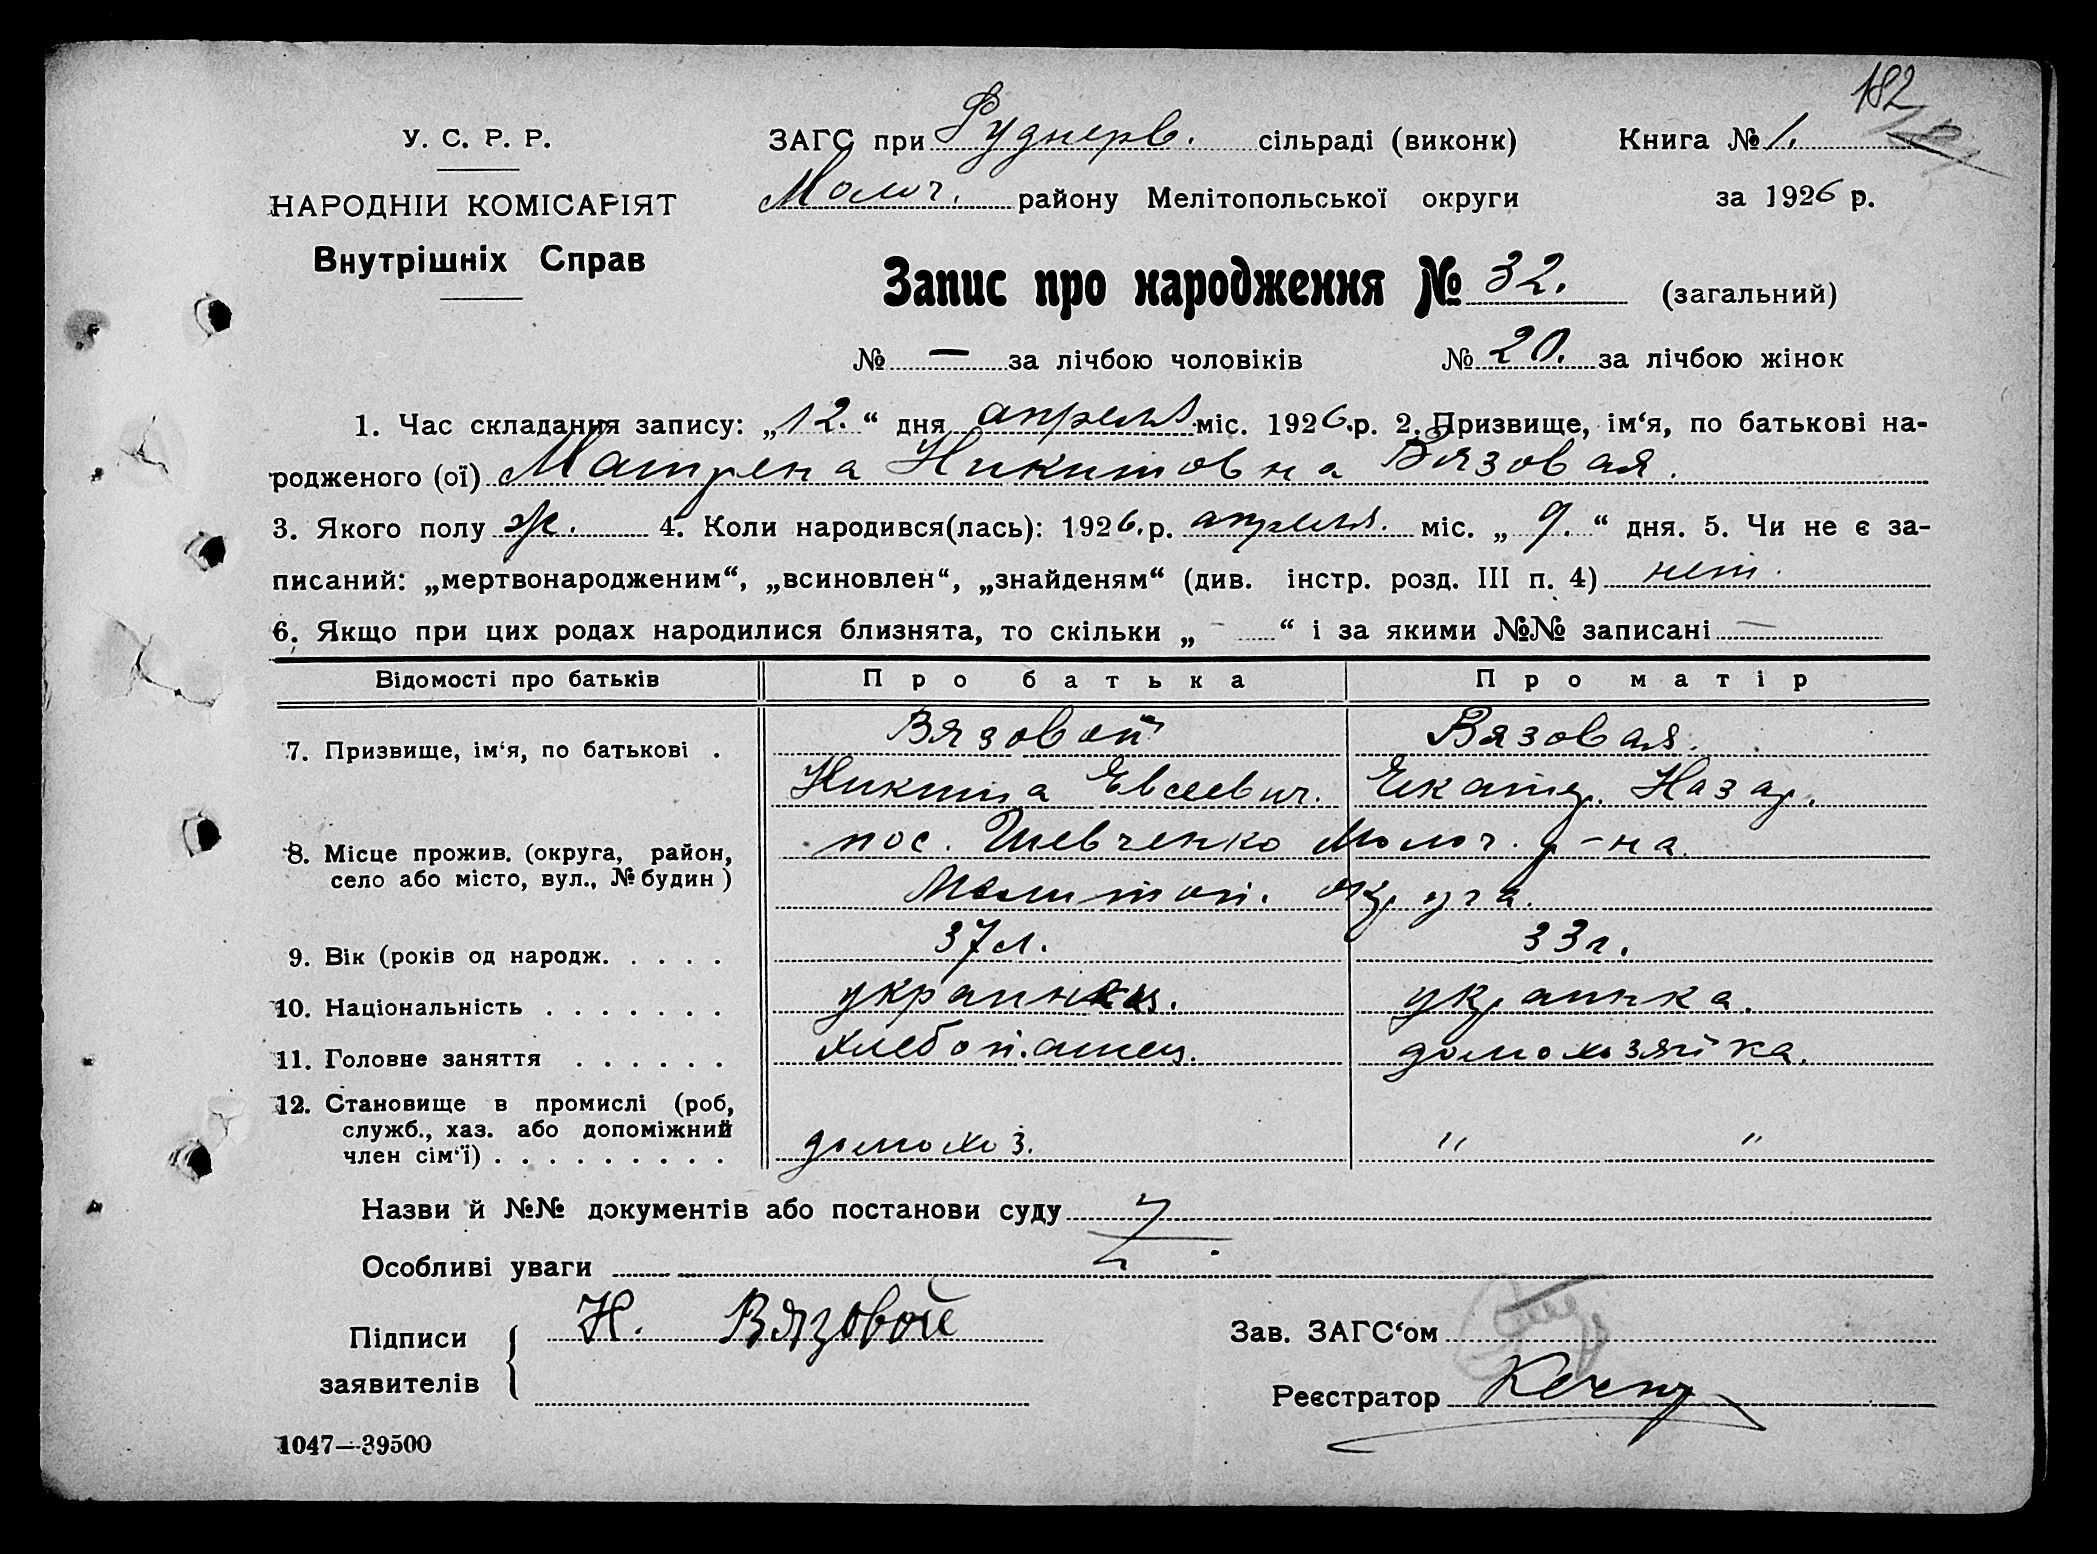 182
У. С. Р. Р.
ЗАГС при Руднерв. сільраді (виконк)
Книга № 1.
НАРОДНІЙ КОМІСАРІЯТ
Молоч. району Мелітопольської округи
за 1926 р.
Внутрішніх Справ
Запис про народження № 32. (загальний)
№ — за лічбою чоловіків № 20. за лічбою жінок
1. Час складання запису: „12.“ дня апреля міс. 1926.р. 2. Призвище, ім‘я, по батькові на-
родженого (ої) Матрена Никитовна Вязовая.
3. Якого полу ж. 4. Коли народився(лась): 1926.р. апреля. міс. „9.“ дня. 5. Чи не є за-
писаний: „мертвонародженим“, „всиновлен“, „знайденям“ (див. інстр. розд. III п. 4) нет.
6. Якщо при цих родах народилися близнята, то скільки „ – “ і за якими №№ записані —
Відомості про батьків Про батька Про матір
7. Призвище, ім‘я, по батькові . Вязовой Вязовая.
Никита Евсеевич. Екатер. Назар.
8. Місце прожив. (округа, район, село або місто, вул., № будин) пос. Шевченко Молоч. р-на
Мелитоп. округа.
9. Вік (років од народж. . . . . 37 л. 33 г.
10. Національність . . . . . . . украинец. украинка.
11. Головне заняття . . . . . . хлебопашец. домохозяйка.
12. Становище в промислі (роб,
служб., хаз. або допоміжний
член сім‘ї) . . . . . . . . . домохоз. " "
Назви й №№ документів або постанови суду
Особливі уваги
Підписи Н. Вязовой
заявителів
Зав. ЗАГС‘ом
Реєстратор
1047—39500